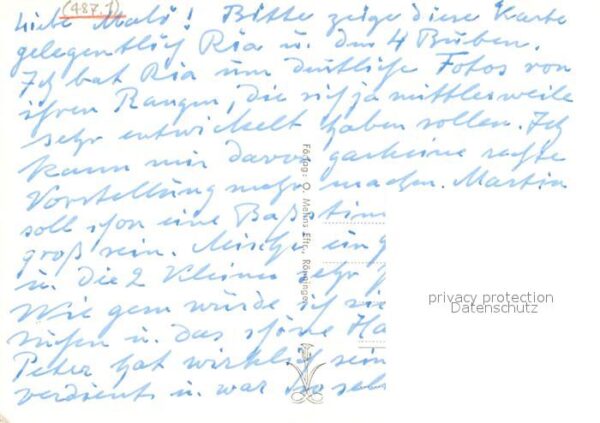 (487,1)
Liebe Mali! Bitte zeige diese Karte
gelegentlich Ria u. den 4 Buben.
Ich bat Ria um deutliche Fotos von
ihren Rangen, die sich ja mittlerweile
sehr entwickelt haben sollen. Ich
kann mir davon garkeine rechte
Vorstellung mehr machen. Martin
soll schon eine Baßstim
groß sein. ein g
u. die 2 Kleinen sehr
Wie gern würde ich sie
u. das schöne Ha
Peter hat wirklich sein
verdient u. war so seh
Förlag: O. Melins Eftr., Rönninge
privacy protection
Datenschutz